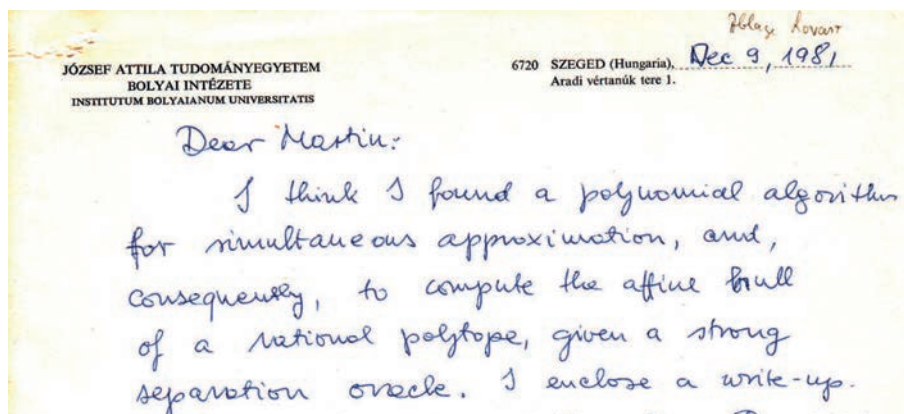 Lovász
JÓZSEF ATTILA TUDOMÁNYEGYETEM
BOLYAI INTÉZETE
INSTITUTUM BOLYAIANUM UNIVERSITATIS
6720 SZEGED (Hungaria), Dec 9, 1981
Aradi vértanúk tere 1.
Dear Martin:
I think I found a polynomial algorithm
for simultaneous approximation, and,
consequently, to compute the affine hull
of a rational polytope, given a strong
separation oracle. I enclose a write-up.